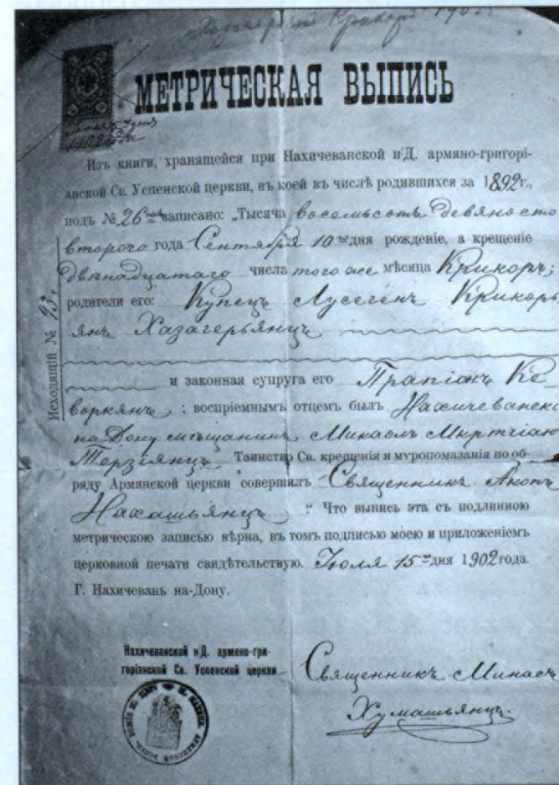 МЕТРИЧЕСКАЯ ВЫПИСЬ
Изъ книги, хранящейся при Нахичеванской н/Д. армяно-григорі-
анской Св. Успенской церкви, въ коей въ числѣ родившихся за 1892 г.,
подъ № 26 записано: „Тысяча восемьсотъ девяносто
второго года Сентября 10 дня рожденіе, а крещеніе
двѣнадцатаго числа того же мѣсяца Крикоръ;
родители его: Купецъ Лусегенъ Крикор
янъ Хазагерьянцъ
и законная супруга его Трапіонъ Ке
воркянъ; воспріемнымъ отцемъ былъ Нахичеванскі
на Дону мѣщанинъ Микаэлъ Мкртчіанъ
Терзіянцъ Таинство Св. крещенія и муропомазанія по об-
ряду Армянской церкви совершилъ Священникъ Акопъ
Нахашьянцъ “ Что выпись эта съ подлинною
метрическою записью вѣрна, въ томъ подписью моею и приложеніемъ
церковной печати свидѣтельствую. Іюля 15 дня 1902 года.
Г. Нахичевань на-Дону.
Исходящій № 93.
Нахичеванской н/Д. армяно-гри-
горіанской Св. Успенской церкви
Священникъ Минасъ
Хумашьянцъ.